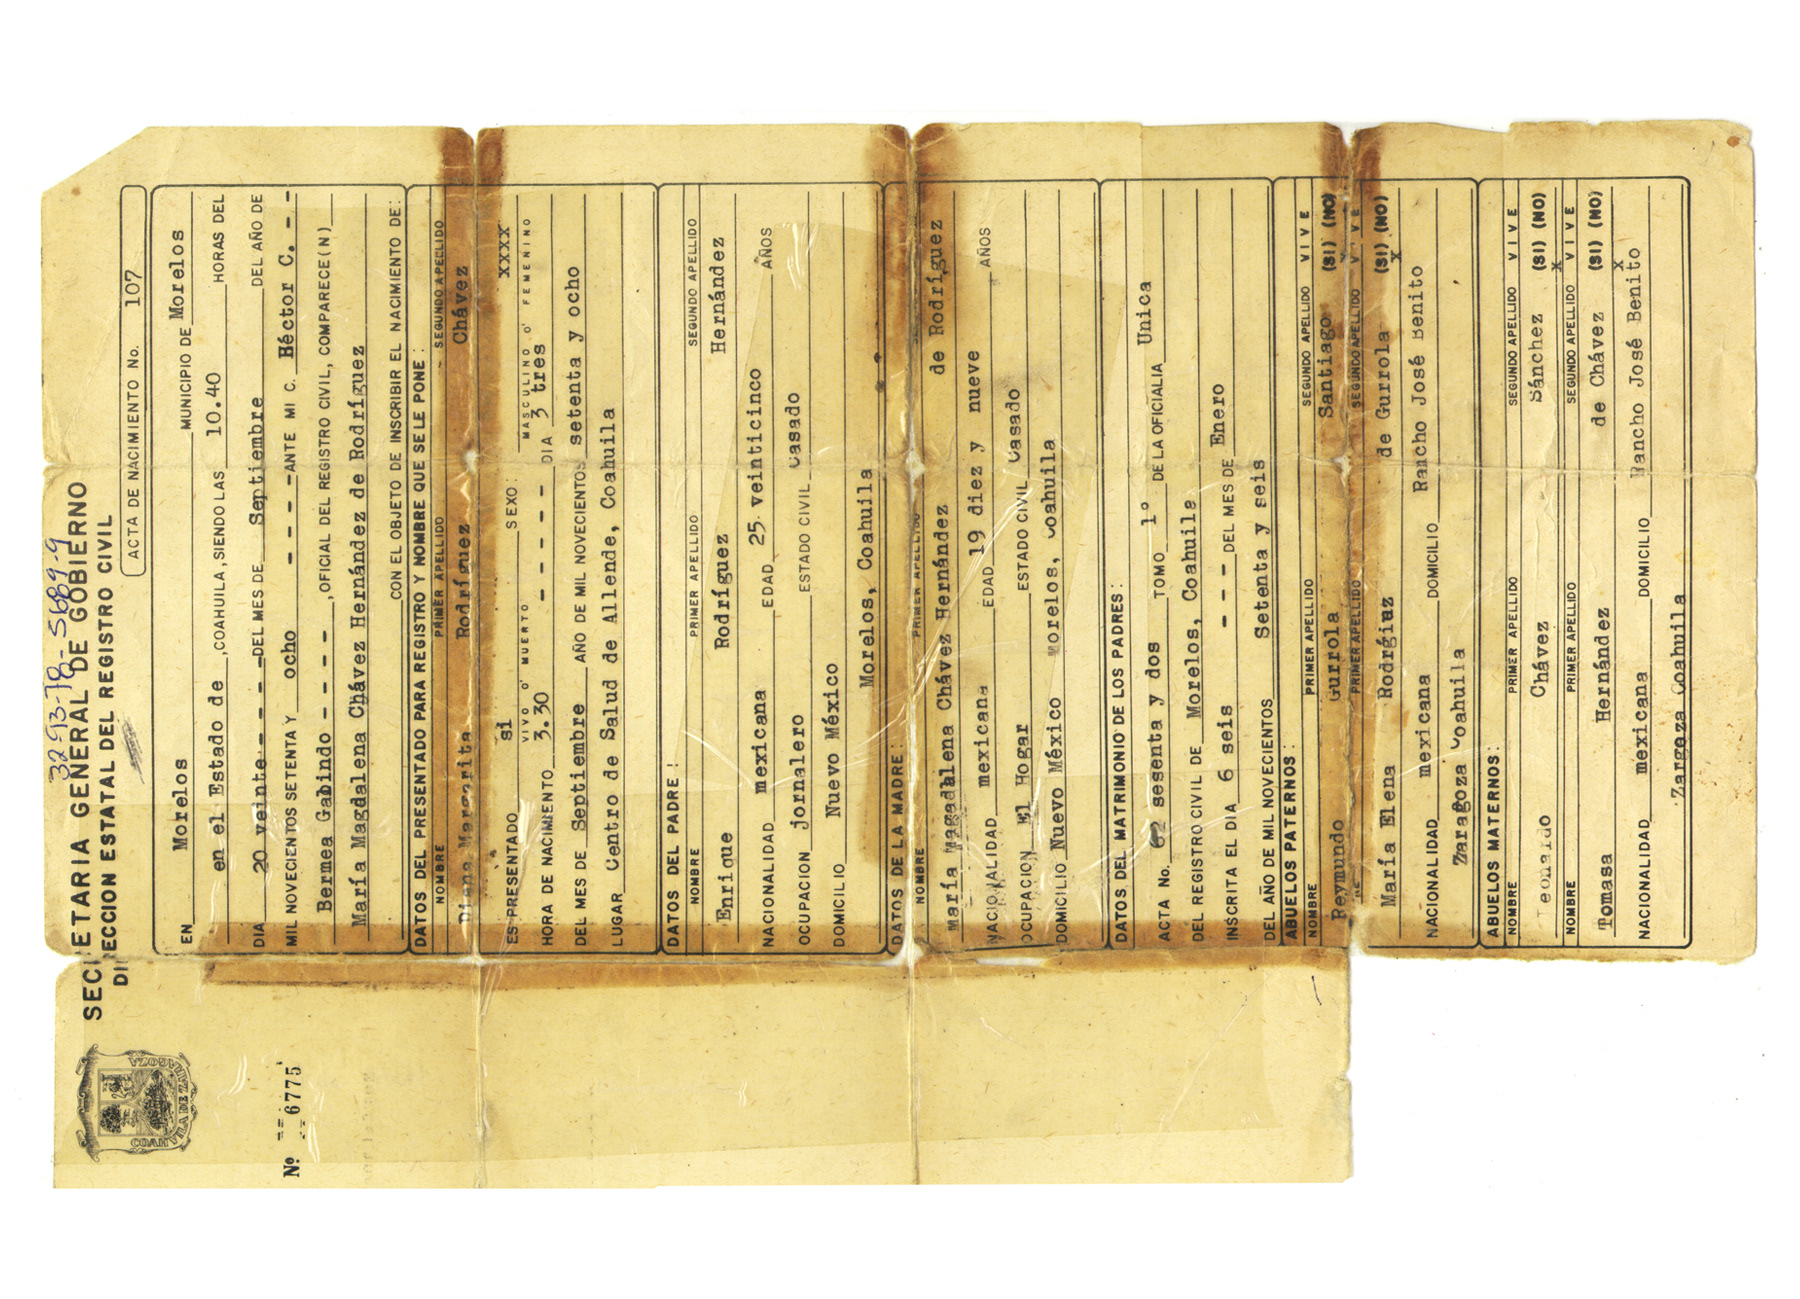 32-93-78-5689-9
SECRETARIA GENERAL DE GOBIERNO
DIRECCION ESTATAL DEL REGISTRO CIVIL
COAHUILA DE ZARAGOZA
Nº 6775
ACTA DE NACIMIENTO No. 107
EN Morelos MUNICIPIO DE Morelos
en el Estado de ,COAHUILA, SIENDO LAS 10.40 HORAS DEL
DIA 20 veinte - - - DEL MES DE Septiembre DEL AÑO DE
MIL NOVECIENTOS SETENTA Y ocho - - - - ANTE MI C. Héctor C. - -
Bermea Gabindo - - - - ,OFICIAL DEL REGISTRO CIVIL, COMPARECE(N)
María Magdalena Chávez Hernández de Rodríguez
CON EL OBJETO DE INSCRIBIR EL NACIMIENTO DE:
DATOS DEL PRESENTADO PARA REGISTRO Y NOMBRE QUE SE LE PONE :
NOMBRE PRIMER APELLIDO SEGUNDO APELLIDO
Diana Margarita Rodríguez Chávez
ES PRESENTADO si SEXO: XXXX
VIVO O' MUERTO MASCULINO O' FEMENINO
HORA DE NACIMIENTO 3.30 - - - - - DIA 3 tres
DEL MES DE Septiembre AÑO DE MIL NOVECIENTOS setenta y ocho
LUGAR Centro de Salud de Allende, Coahuila
DATOS DEL PADRE :
NOMBRE PRIMER APELLIDO SEGUNDO APELLIDO
Enrique Rodríguez Hernández
NACIONALIDAD mexicana EDAD 25 veinticinco AÑOS
OCUPACION jornalero ESTADO CIVIL Casado
DOMICILIO Nuevo México
Morelos, Coahuila
DATOS DE LA MADRE :
NOMBRE PRIMER APELLIDO
María Magadalena Chávez Hernández de Rodríguez
NACIONALIDAD mexicana EDAD 19 diez y nueve AÑOS
OCUPACION El Hogar ESTADO CIVIL Casado
DOMICILIO Nuevo México Morelos, Coahuila
DATOS DEL MATRIMONIO DE LOS PADRES :
ACTA No. 62 sesenta y dos TOMO 1º DE LA OFICIALIA Unica
DEL REGISTRO CIVIL DE Morelos, Coahuila
INSCRITA EL DIA 6 seis - - - DEL MES DE Enero
DEL AÑO DE MIL NOVECIENTOS Setenta y seis
ABUELOS PATERNOS :
NOMBRE PRIMER APELLIDO SEGUNDO APELLIDO VIVE
Reymundo Gurrola Santiago (SI) (NO)
PRIMER APELLIDO SEGUNDO APELLIDO VIVE
María Elena Rodrgiuz de Gurrola (SI) (NO)
X
NACIONALIDAD mexicana DOMICILIO Rancho José Benito
Zaragoza Coahuila
ABUELOS MATERNOS :
NOMBRE PRIMER APELLIDO SEGUNDO APELLIDO VIVE
Leonardo Chávez Sánchez (SI) (NO)
X
NOMBRE PRIMER APELLIDO SEGUNDO APELLIDO VIVE
Tomasa Hernández de Chávez (SI) (NO)
X
NACIONALIDAD mexicana DOMICILIO Rancho José Benito
Zargoza Coahuila